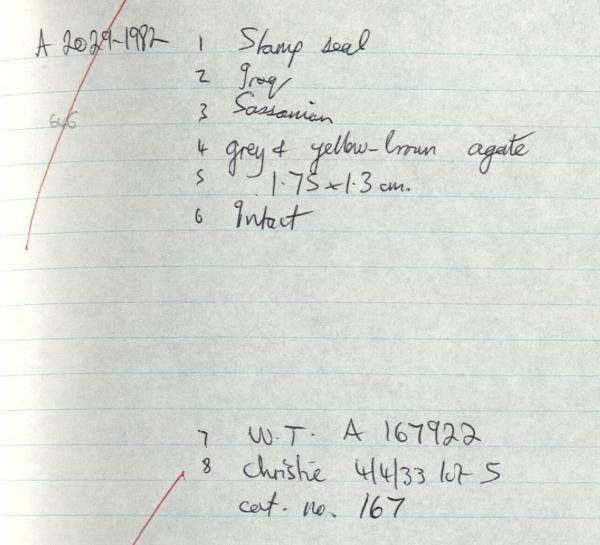 A 2029-1982 1 Stamp seal
2 Iraq
646
3 Sassanian
4 grey & yellow-brown agate
5 1.75 x 1.3 cm.
6 Intact
7 W.T. A 167922
8 Christie 4/4/33 lot 5
cat. no. 167